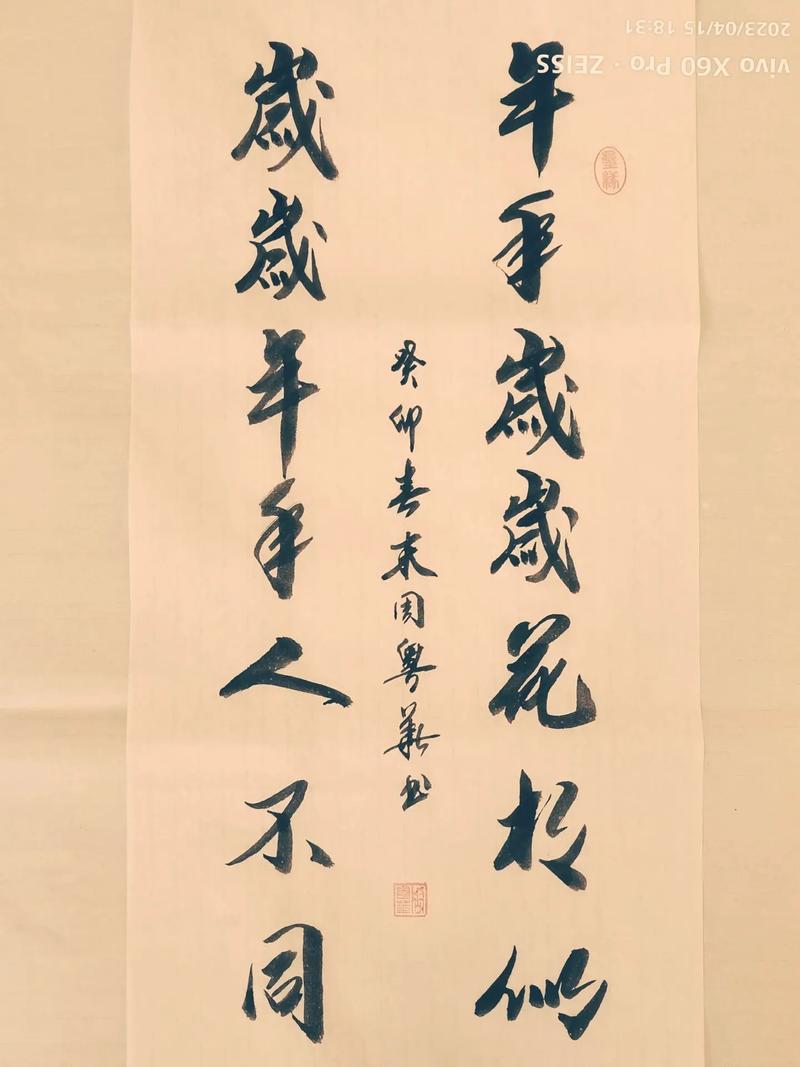 年年歲歲花相似
歲歲年年人不同
癸卯春末周粵華书
墨緣
vivo X60 Pro · ZEISS
2023/04/15 18:31